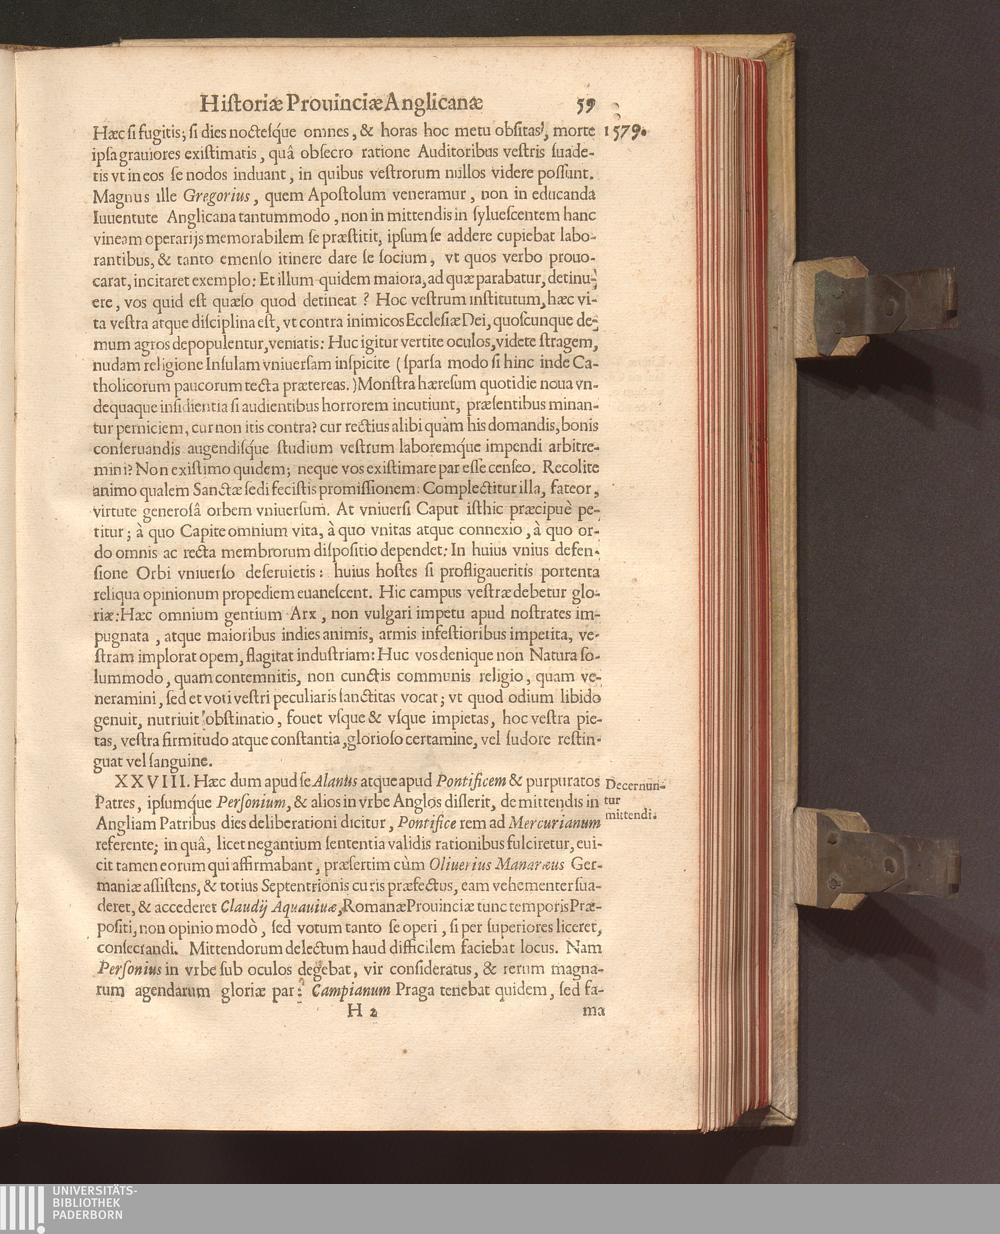 Hiſtoriæ Prouinciæ Anglicanæ 59
Hæc ſi fugitis; ſi dies nocteſque omnes, & horas hoc metu obſitas, morte 1579.
ipſa grauiores exiſtimatis, quâ obſecro ratione Auditoribus veſtris ſuade-
tis vt in eos ſe nodos induant, in quibus veſtrorum nullos videre poſſunt.
Magnus ille Gregorius, quem Apoſtolum veneramur, non in educanda
Iuuentute Anglicana tantummodo, non in mittendis in ſylueſcentem hanc
vineam operarijs memorabilem ſe præſtitit, ipſum ſe addere cupiebat labo-
rantibus, & tanto emenſo itinere dare ſe ſocium, vt quos verbo prouo-
carat, incitaret exemplo: Et illum quidem maiora, ad quæ parabatur, detinu-
ere, vos quid eſt quæſo quod detineat ? Hoc veſtrum inſtitutum, hæc vi-
ta veſtra atque diſciplina eſt, vt contra inimicos Eccleſiæ Dei, quoſcunque de-
mum agros depopulentur, veniatis: Huc igitur vertite oculos, videte ſtragem,
nudam religione Inſulam vniuerſam inſpicite (ſparſa modo ſi hinc inde Ca-
tholicorum paucorum tecta prætereas.) Monſtra hæreſum quotidie noua vn-
dequaque inſidientia ſi audientibus horrorem incutiunt, præſentibus minan-
tur perniciem, cur non itis contra? cur rectius alibi quàm his domandis, bonis
conſeruandis augendiſque ſtudium veſtrum laboremque impendi arbitre-
mini? Non exiſtimo quidem; neque vos exiſtimare par eſſe cenſeo. Recolite
animo qualem Sanctæ ſedi feciſtis promiſſionem: Complectitur illa, fateor,
virtute generoſâ orbem vniuerſum. At vniuerſi Caput iſthic præcipuè pe-
titur; à quo Capite omnium vita, à quo vnitas atque connexio, à quo or-
do omnis ac recta membrorum diſpoſitio dependet: In huius vnius defen-
ſione Orbi vniuerſo deſeruietis: huius hoſtes ſi profligaueritis portenta
reliqua opinionum propediem euaneſcent. Hic campus veſtræ debetur glo-
riæ: Hæc omnium gentium Arx, non vulgari impetu apud noſtrates im-
pugnata, atque maioribus indies animis, armis infeſtioribus impetita, ve-
ſtram implorat opem, flagitat induſtriam: Huc vos denique non Natura ſo-
lummodo, quam contemnitis, non cunctis communis religio, quam ve-
neramini, ſed et voti veſtri peculiaris ſanctitas vocat; vt quod odium libido
genuit, nutriuit obſtinatio, fouet vſque & vſque impietas, hoc veſtra pie-
tas, veſtra firmitudo atque conſtantia, glorioſo certamine, vel ſudore reſtin-
guat vel ſanguine.
XXVIII. Hæc dum apud ſe Alanus atque apud Pontificem & purpuratos
Patres, ipſumque Perſonium, & alios in vrbe Anglos diſſerit, de mittendis in
Angliam Patribus dies deliberationi dicitur, Pontifice rem ad Mercurianum
referente; in quâ, licet negantium ſententia validis rationibus fulciretur, eui-
cit tamen eorum qui affirmabant, præſertim cùm Oliuerius Manaræus Ger-
maniæ aſſiſtens, & totius Septentrionis curis præfectus, eam vehementer ſua-
deret, & accederet Claudij Aquauiuæ, Romanæ Prouinciæ tunc temporis Præ-
poſiti, non opinio modò, ſed votum tanto ſe operi, ſi per ſuperiores liceret,
conſecrandi. Mittendorum delectum haud difficilem faciebat locus. Nam
Perſonius in vrbe ſub oculos degebat, vir conſideratus, & rerum magna-
rum agendarum gloriæ par: Campianum Praga tenebat quidem, ſed fa-
H 2 ma
Decernun-
tur
mittendi.
UNIVERSITÄTS-
BIBLIOTHEK
PADERBORN